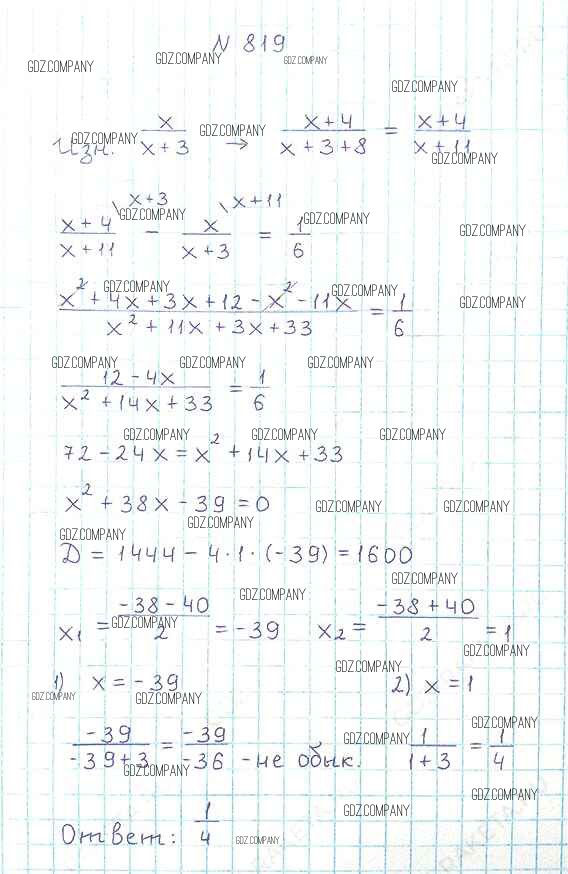 N 819
Изн. x/(x+3) → (x+4)/(x+3+8) = (x+4)/(x+11)
(x+4)/(x+11) \x+3 − x/(x+3) \x+11 = 1/6
(x² + 4x + 3x + 12 − x² − 11x)/(x² + 11x + 3x + 33) = 1/6
(12 − 4x)/(x² + 14x + 33) = 1/6
72 − 24x = x² + 14x + 33
x² + 38x − 39 = 0
D = 1444 − 4·1·(−39) = 1600
x₁ = (−38 − 40)/2 = −39 x₂ = (−38 + 40)/2 = 1
1) x = −39 2) x = 1
−39/(−39+3) = −39/−36 - не обык. 1/(1+3) = 1/4
Ответ: 1/4
GDZ.COMPANY